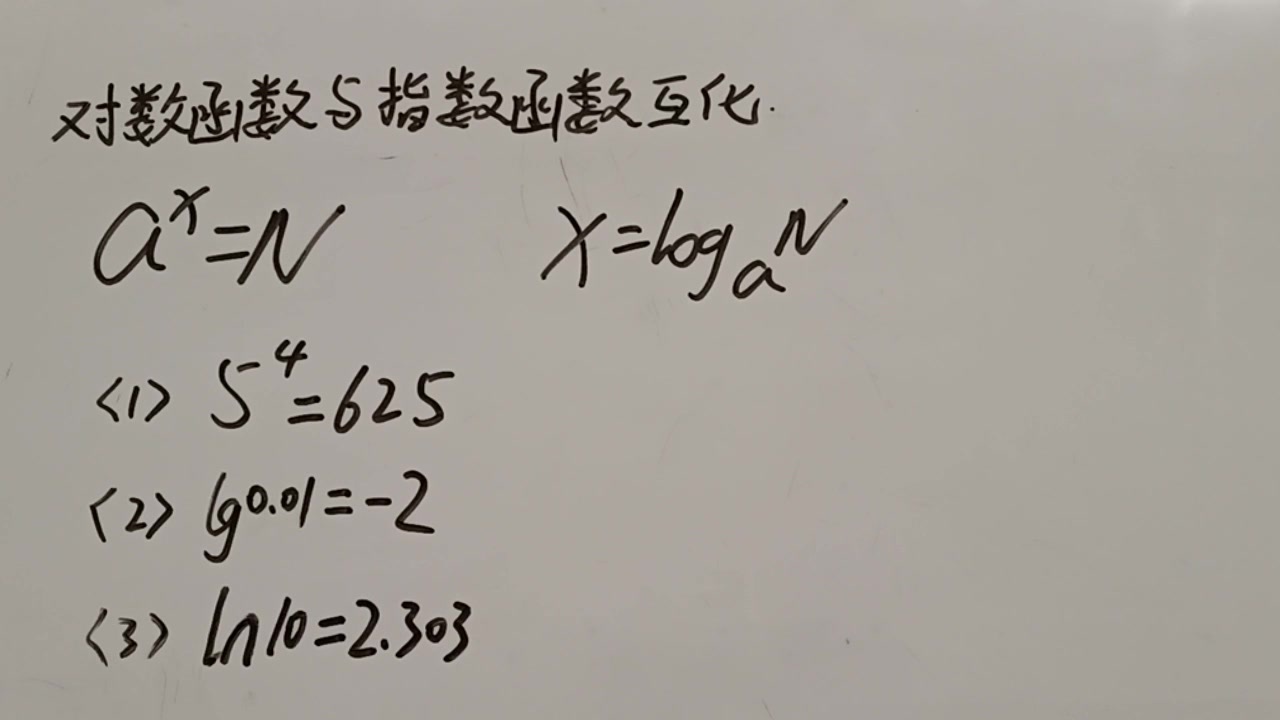 对数函数与指数函数互化.
aˣ=N x=logₐN
<1> 5⁴=625
<2> lg0.01=-2
<3> ln10=2.303